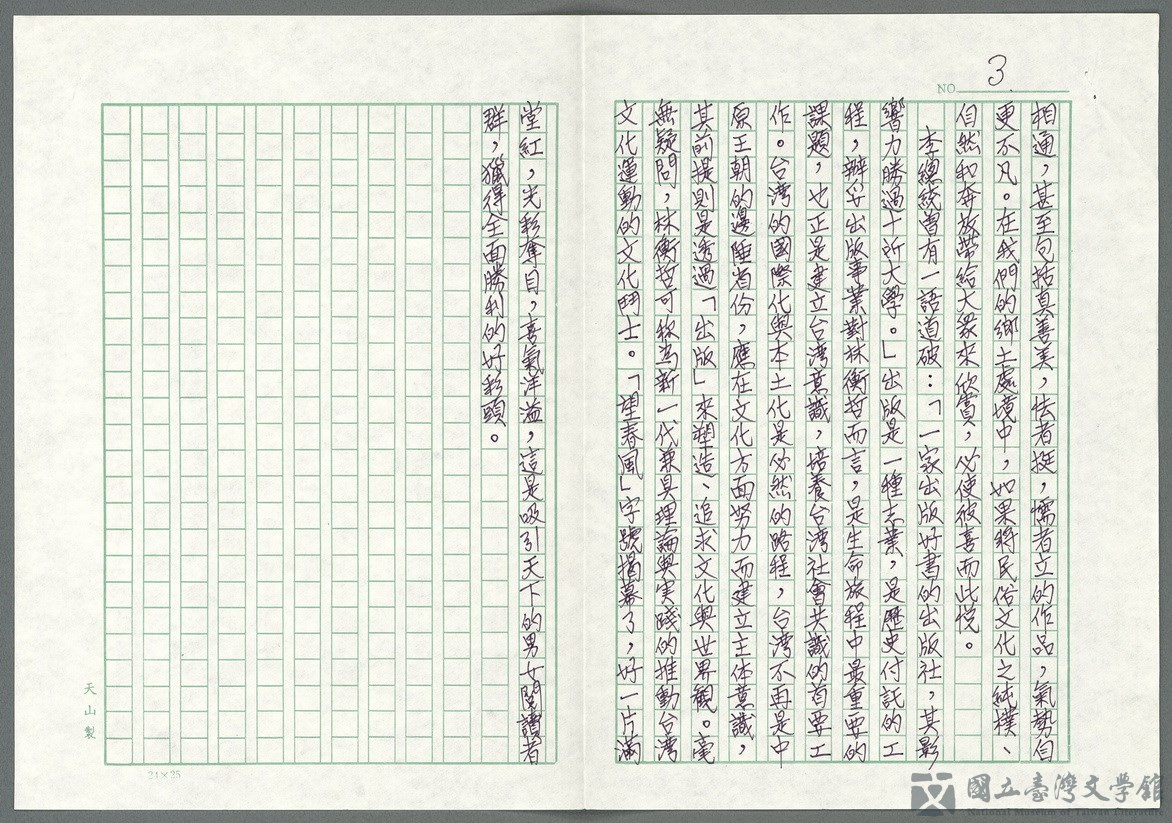 NO. 3
相通，甚至包括真善美，怯者挺，懦者立的作品，氣勢自
更不凡。在我們的鄉土處境中，如果將民俗文化之純樸、
自然和奔放帶給大眾來欣賞，必使彼喜而此悅。
李總統曾有一語道破：「一家出版好書的出版社，其影
響力勝過十所大學。」出版是一種志業，是歷史付託的工
程，辦妥出版事業對林衡哲而言，是生命旅程中最重要的
課題，也正是建立台湾意識，培養台湾社會共識的首要工
作。台湾的國際化與本土化是必然的路程，台湾不再是中
原王朝的邊陲省份，應在文化方面努力而建立主体意識，
其前提則是透過「出版」來塑造、追求文化與世界觀。毫
無疑問，林衡哲可称為新一代兼具理論與実踐的推動台湾
文化運動的文化鬥士。「望春風」字號揭幕了，好一片滿
堂紅，光彩奪目，喜氣洋溢，這是吸引天下的男女閱讀者
群，獵得全面勝利的好彩頭。
天山製
24×25
國立臺灣文學館
National Museum of Taiwan Literature